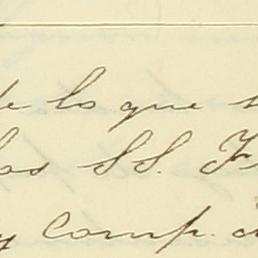 de lo que
los SS. F
y Comp.